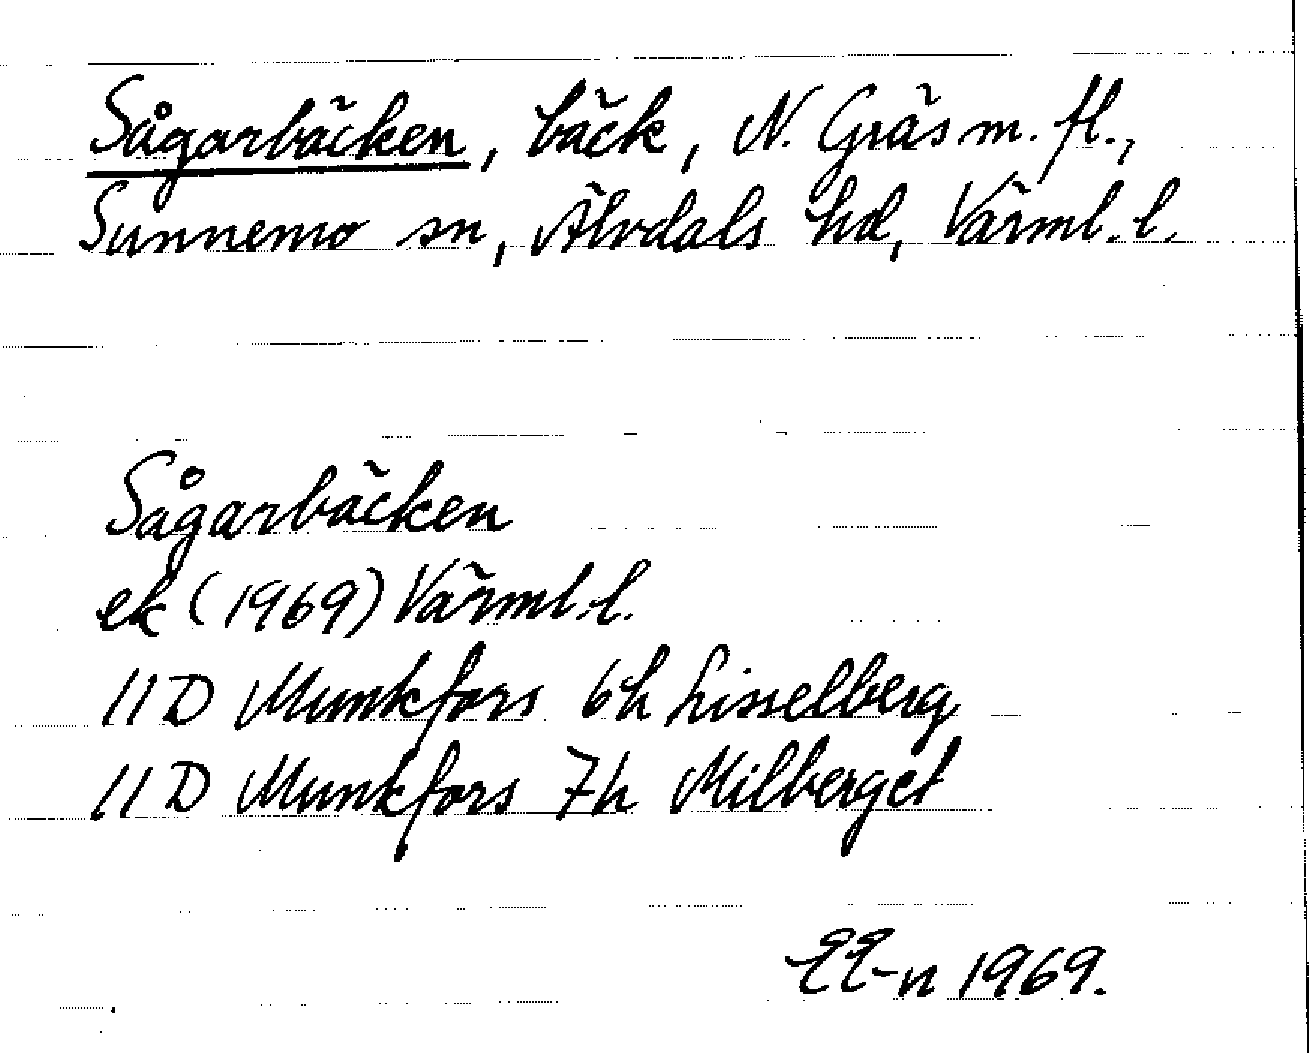 Sågarbäcken, bäck, N. Gräs m. fl.,
Sunnemo sn, Älvdals hd, Värml. l.
Sågarbäcken
ek (1969) Värml. l.
11 D Munkfors 6h Lisselberg
11 D Munkfors 7h Milberget
EE-n 1969.